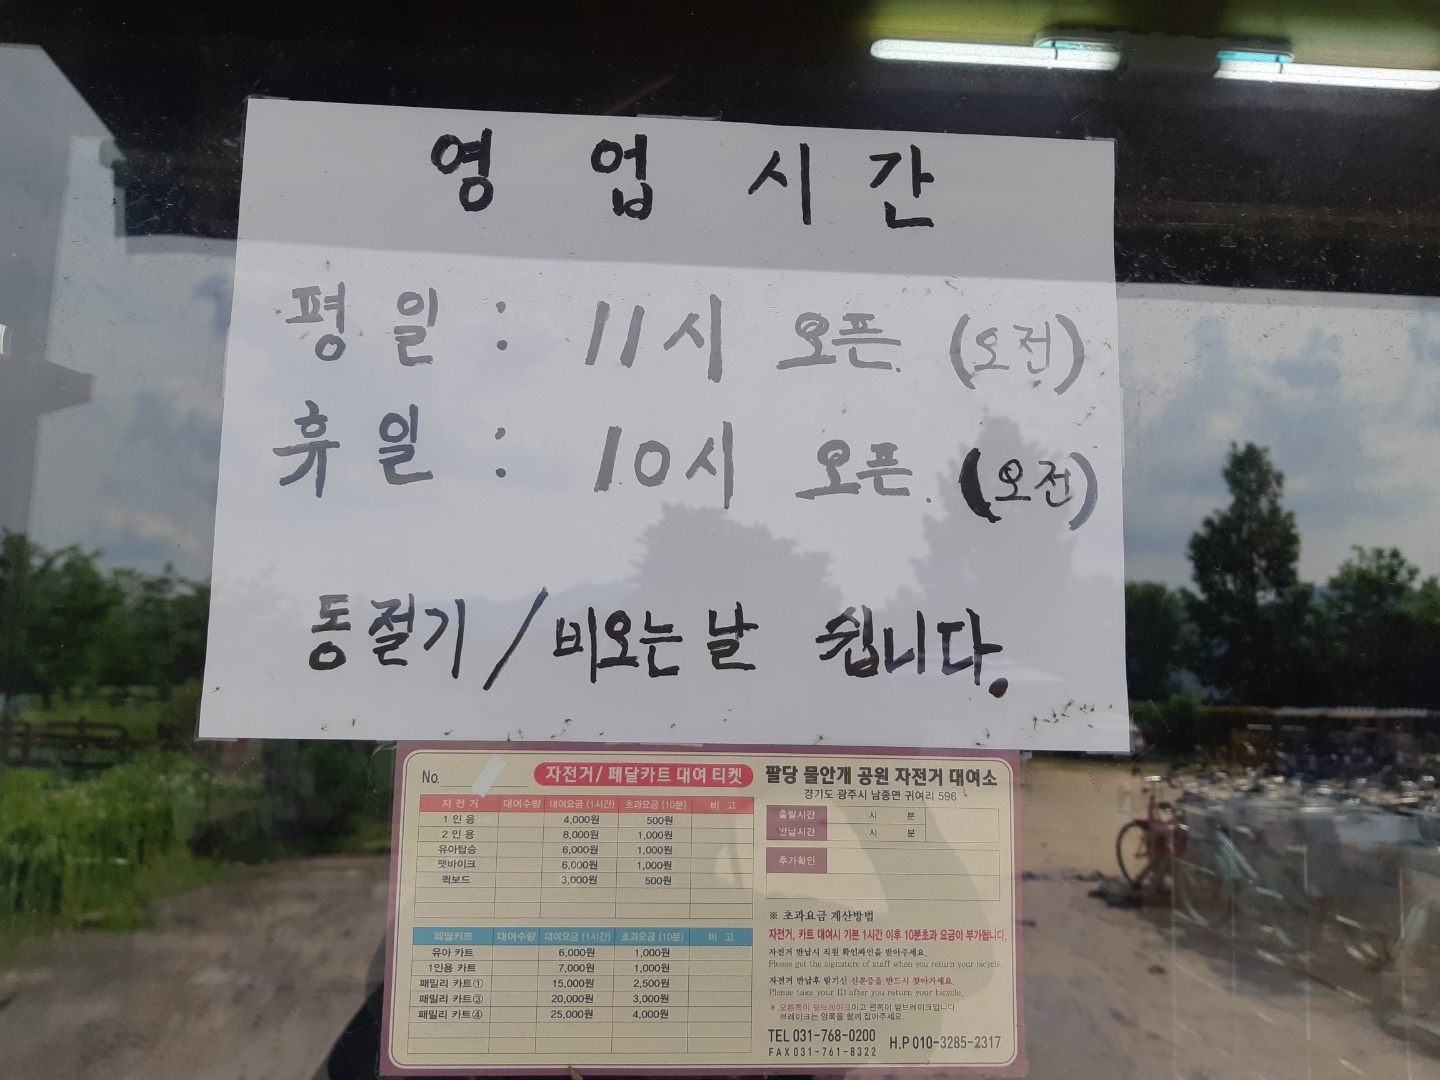 영업시간
평일 : 11시 오픈. (오전)
휴일 : 10시 오픈. (오전)
동절기 / 비오는날 쉽니다.
No.
자전거/페달카트 대여 티켓
자전거 대여수량 대여요금 (1시간) 초과요금 (10분) 비고
1인용 4,000원 500원
2인용 8,000원 1,000원
유아탑승 6,000원 1,000원
팻바이크 6,000원 1,000원
퀵보드 3,000원 500원
페달카트 대여수량 대여요금 (1시간) 초과요금 (10분) 비고
유아 카트 6,000원 1,000원
1인용 카트 7,000원 1,000원
패밀리 카트① 15,000원 2,500원
패밀리 카트③ 20,000원 3,000원
패밀리 카트④ 25,000원 4,000원
팔당 물안개 공원 자전거 대여소
경기도 광주시 남종면 귀여리 596
출발시간 시 분
반납시간 시 분
추가확인
※ 초과요금 계산방법
자전거, 카트 대여시 기본 1시간 이후 10분초과 요금이 부가됩니다.
자전거 반납시 직원 확인싸인을 받아주세요.
Please get the signature of staff when you return your bicycle.
자전거 반납후 맡기신 신분증을 반드시 찾아가세요.
Please take your ID after you return your bicycle.
※ 오른쪽이 뒷브레이크이고 왼쪽이 앞브레이크입니다.
브레이크는 양쪽을 함께 잡아주세요.
TEL 031-768-0200
FAX 031-761-8322
H.P 010-3285-2317